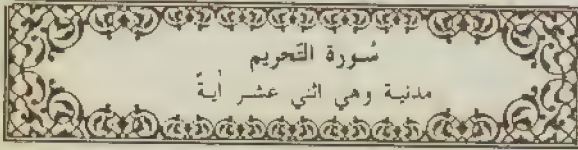 سُورة التّحريم
مدنية وهي اثني عشر أيةً